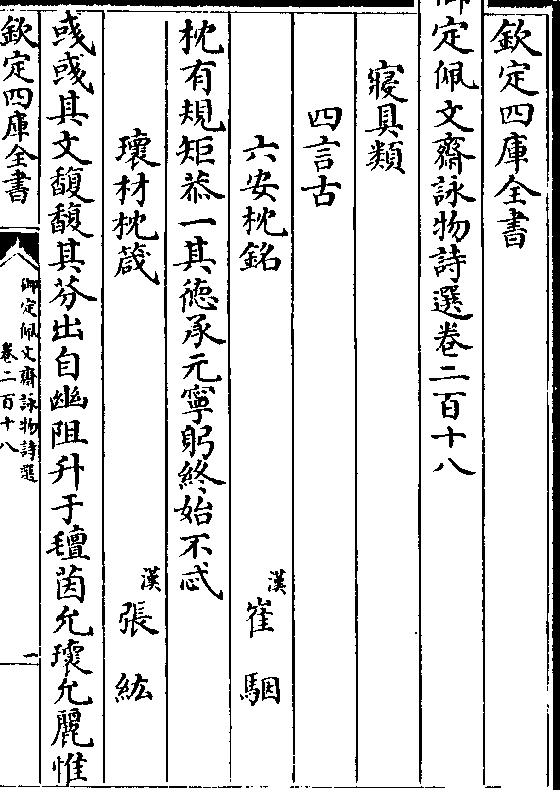 欽定四庫全書
御定佩文齋詠物詩選卷二百十八
寢具類
四言古
六安枕銘 漢崔駰
枕有規矩恭一其德承元寧躬終始不忒
瓌材枕箴 漢張紘
彧彧其文馥馥其芬出自幽阻升于氊茵允瓌允麗惟
欽定四庫全書
御定佩文齋詠物詩選
卷二百十八
一